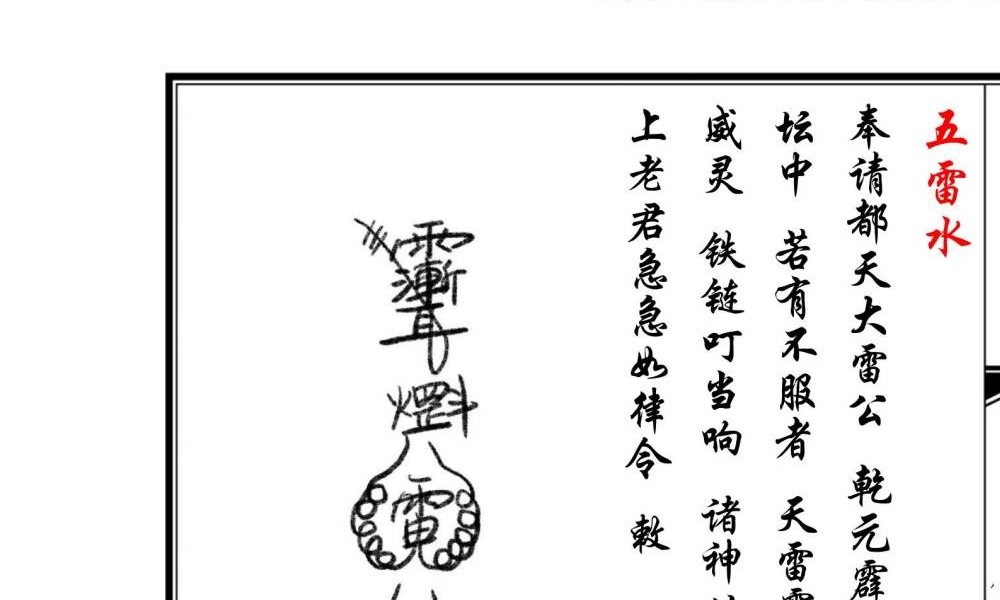 五雷水
奉请都天大雷公 乾元霹
坛中 若有不服者 天雷
威灵 铁链叮当响 诸神
上老君急急如律令 敕